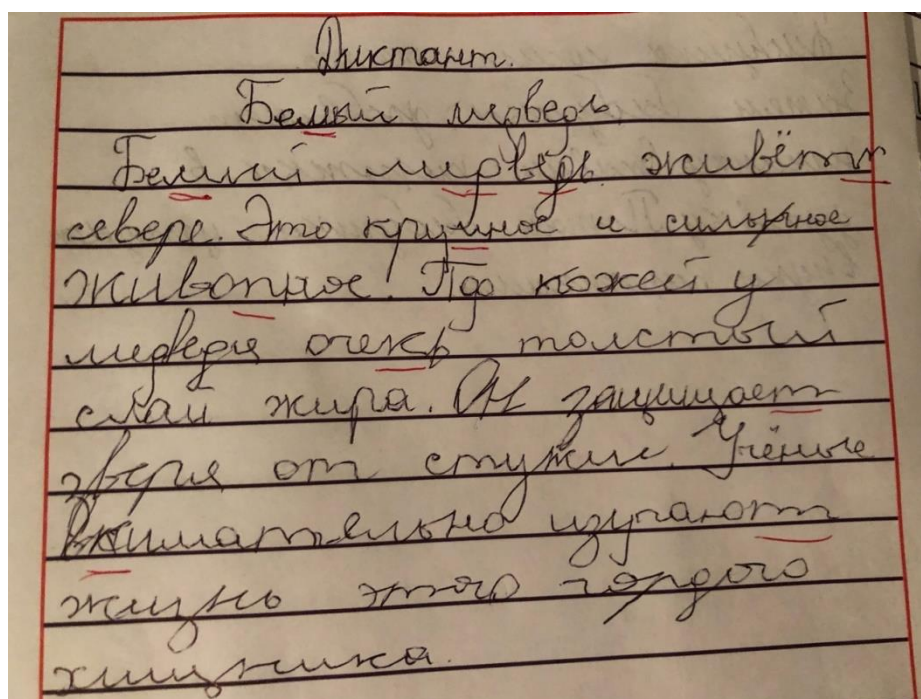 Диктант.
Белый медведь
Белый медведь живёт
севере. Это крупное и сильное
животное. Под кожей у
медведя очень толстый
слай жира. Он защищает
зверя от стужи. Учёные
внимательно изучают
жизнь этого гордого
хищника.